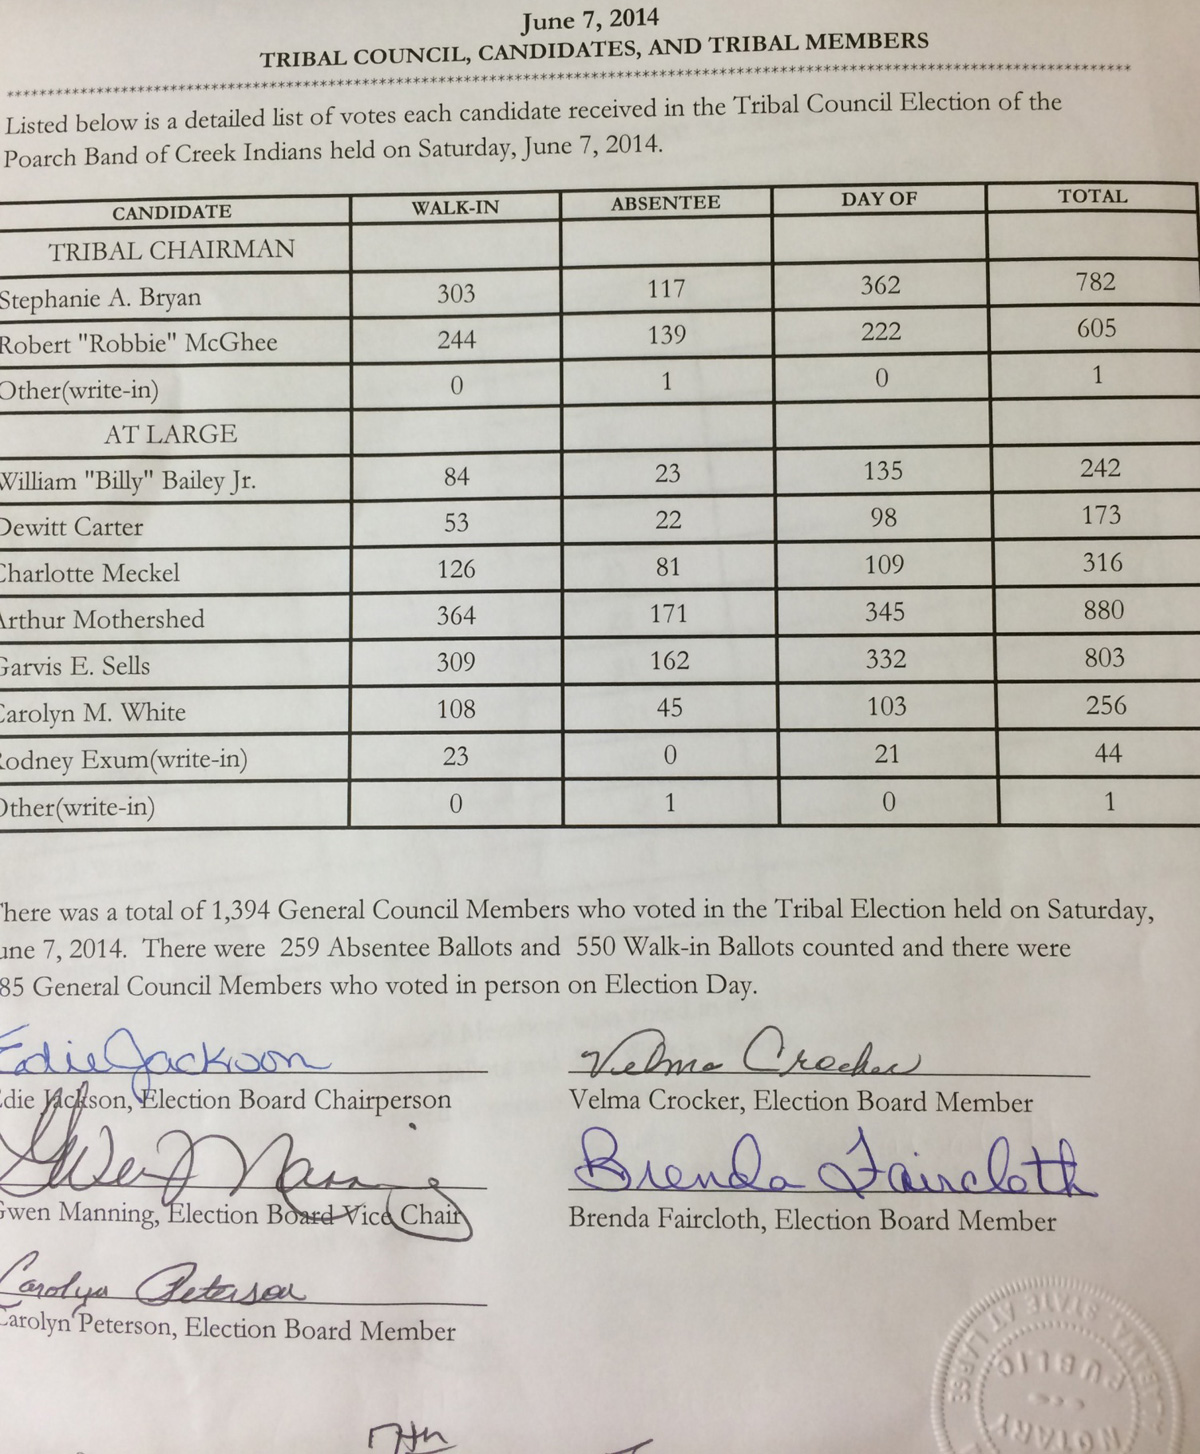 June 7, 2014
TRIBAL COUNCIL, CANDIDATES, AND TRIBAL MEMBERS
Listed below is a detailed list of votes each candidate received in the Tribal Council Election of the
Poarch Band of Creek Indians held on Saturday, June 7, 2014.
CANDIDATE WALK-IN ABSENTEE DAY OF TOTAL
TRIBAL CHAIRMAN
Stephanie A. Bryan 303 117 362 782
Robert "Robbie" McGhee 244 139 222 605
Other(write-in) 0 1 0 1
AT LARGE
William "Billy" Bailey Jr. 84 23 135 242
Dewitt Carter 53 22 98 173
Charlotte Meckel 126 81 109 316
Arthur Mothershed 364 171 345 880
Garvis E. Sells 309 162 332 803
Carolyn M. White 108 45 103 256
Rodney Exum(write-in) 23 0 21 44
Other(write-in) 0 1 0 1
There was a total of 1,394 General Council Members who voted in the Tribal Election held on Saturday,
June 7, 2014. There were 259 Absentee Ballots and 550 Walk-in Ballots counted and there were
85 General Council Members who voted in person on Election Day.
Edie Jackson Velma Crocker
Edie Jackson, Election Board Chairperson Velma Crocker, Election Board Member
Gwen Manning Brenda Faircloth
Gwen Manning, Election Board Vice Chair Brenda Faircloth, Election Board Member
Carolyn Peterson
Carolyn Peterson, Election Board Member
NOTARY
PUBLIC
STATE AT LARGE
7th